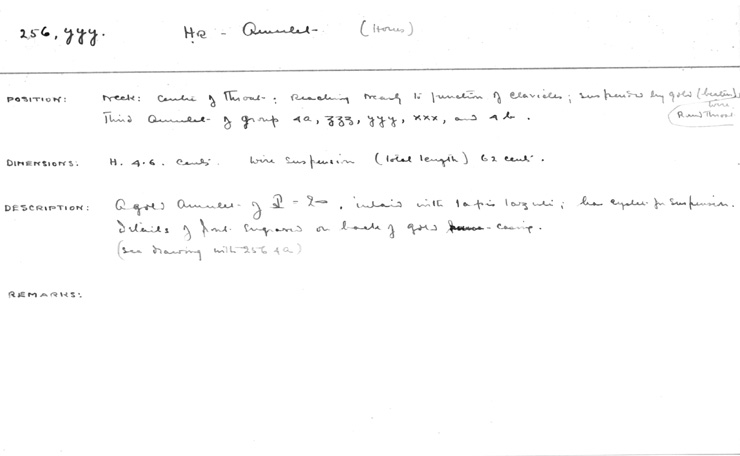 256, yyy. Ḥṛ - Amulet (Horus)
POSITION: Neck: Centre of Throat: Reaching nearly to junction of clavicles; suspended by gold (beaten) wire
Third Amulet of group 4a, zzz, yyy, xxx, and 4b. Round Throat
DIMENSIONS: H. 4.6. cents. Wire suspension (total length) 62 cents.
DESCRIPTION: A gold Amulet of, inlaid with lapis lazuli; has eyelet for suspension.
Details of front engraved on back of gold casing.
(see drawing with 256 4a)
REMARKS: